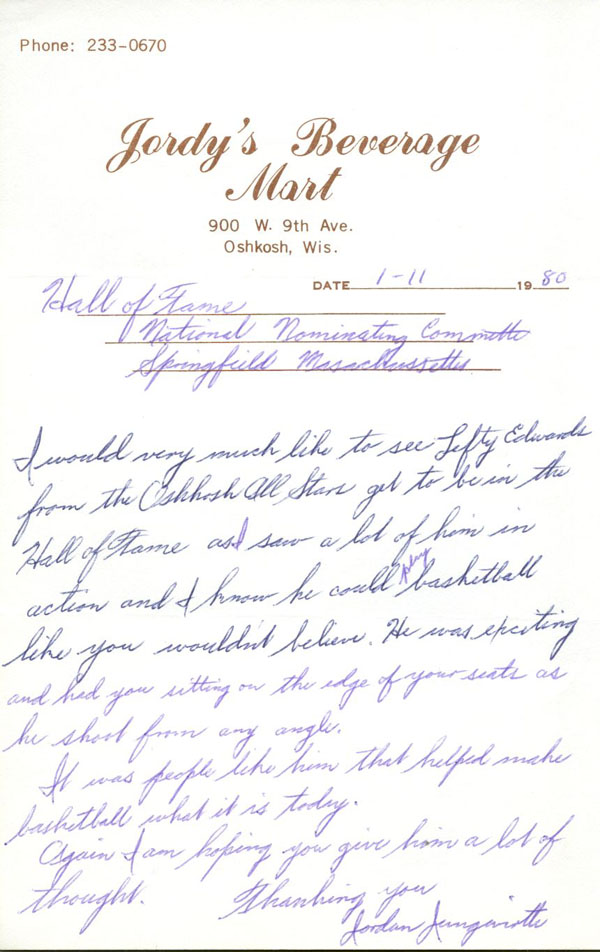 Phone: 233-0670
Jordy's Beverage
Mart
900 W. 9th Ave.
Oshkosh, Wis.
DATE 1-11 19 80
Hall of Fame
National Nominating Committe
Springfield Masachussetts
I would very much like to see Lefty Edwards
from the Oshkosh All Stars get to be in the
Hall of Fame as I saw a lot of him in
action and I know he could play basketball
like you wouldn't believe. He was exciting
and had you sitting on the edge of your seats as
he shoot from any angle.
It was people like him that helped make
basketball what it is today.
Again I am hoping you give him a lot of
thought. Thanking you
Jordan